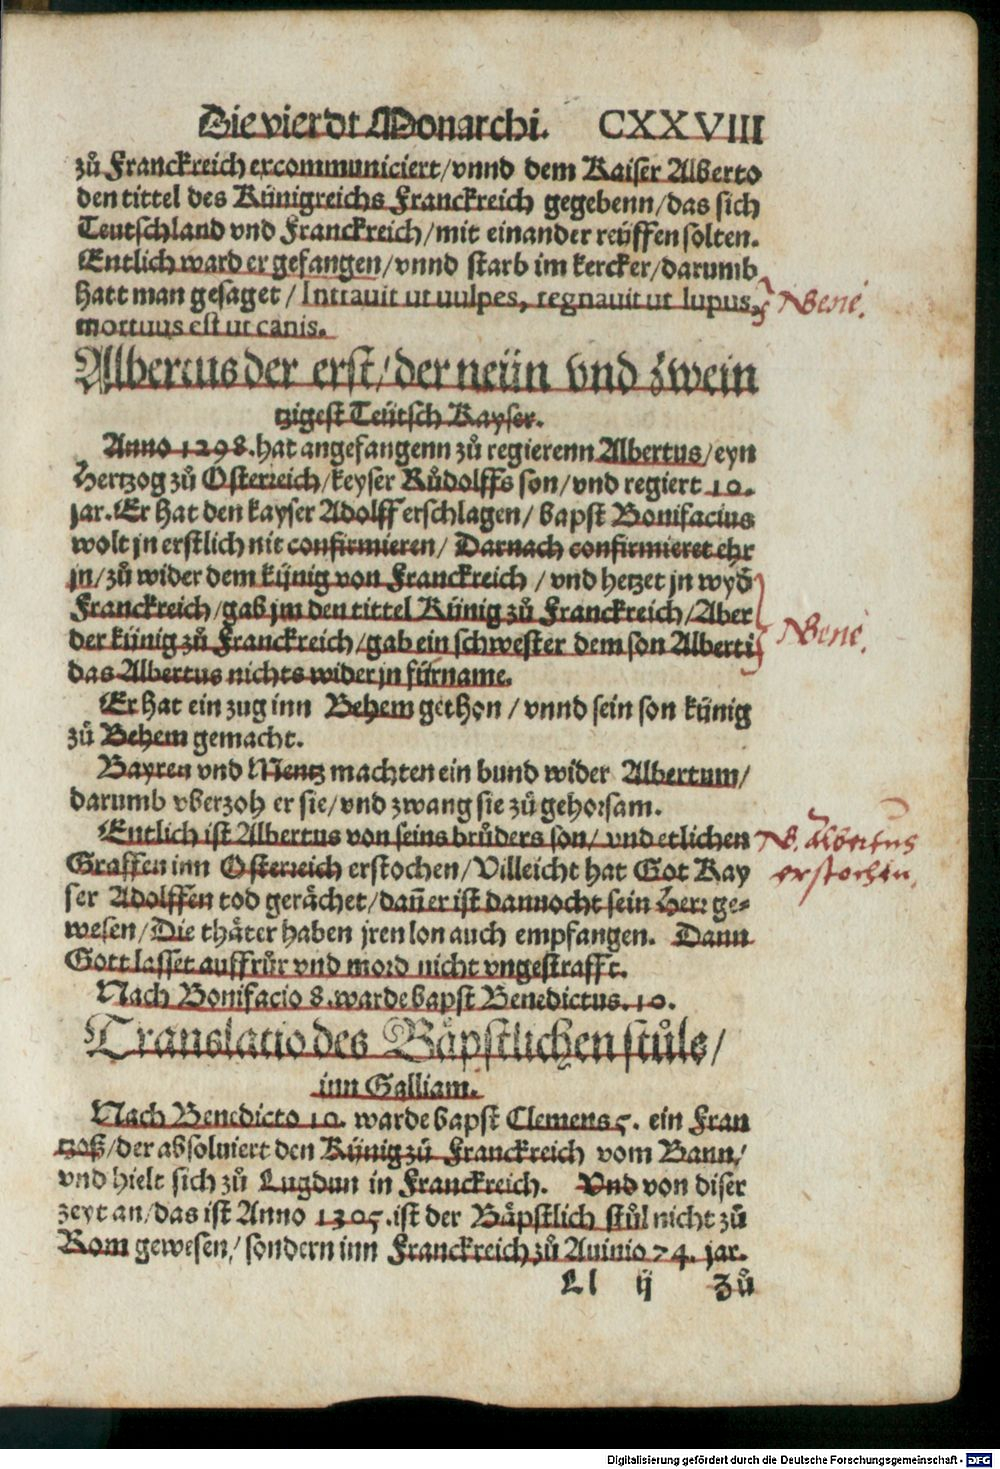 Die vierdt Monarchi. CXXVIII
zů Franckreich excommuniciert/vnnd dem Kaiser Alberto
den tittel des Künigreichs Franckreich gegebenn/das sich
Teutschland vnd Franckreich/mit einander reyffen solten.
Entlich ward er gefangen/vnnd starb im kercker/darumb
hatt man gesaget/Intrauit ut uulpes, regnauit ut lupus,
mortuus est ut canis.
Nene.
Albertus der erst/der neün vnd zwein
tzigest Teütsch Kayser.
Anno 1298.hat angefangenn zů regierenn Albertus/eyn
Hertzog zů Osterreich/keyser Růdolffs son/vnd regiert 10.
jar.Er hat den kayser Adolff erschlagen/bapst Bonifacius
wolt jn erstlich nit confirmieren/Darnach confirmieret ehr
jn/zů wider dem künig von Franckreich/vnd hetzet jn wyd̄
Franckreich/gab jm den tittel Künig zů Franckreich/Aber
der künig zů Franckreich/gab ein schwester dem son Alberti
das Albertus nichts wider jn fürname.
Nene.
Er hat ein zug inn Behem gethon/vnnd sein son künig
zů Behem gemacht.
Bayren vnd Mentz machten ein bund wider Albertum/
darumb vberzoh er sie/vnd zwang sie zů gehorsam.
Entlich ist Albertus von seins brůders son/vnd etlichen
Graffen inn Osterreich erstochen/Villeicht hat Got Kay
ser Adolffen tod gerächet/dañ er ist dannocht sein Herr ge-
wesen/Die thäter haben jren lon auch empfangen. Dann
Gott lasset auffrůr vnd mord nicht vngestrafft.
N. Albertus
erstochen.
Nach Bonifacio 8.warde bapst Benedictus.10.
Translatio des Bäpstlichen stůls/
inn Galliam.
Nach Benedicto 10. warde bapst Clemens 5. ein Fran
tzoß/der absoluiert den Künig zů Franckreich vom Bann/
vnd hielt sich zů Lugdun in Franckreich. Vnd von diser
zeyt an/das ist Anno 1305.ist der Bäpstlich stůl nicht zů
Rom gewesen/sondern inn Franckreich zů Auinio 74. jar.
Ll ij Zů
Digitalisierung gefördert durch die Deutsche Forschungsgemeinschaft - DFG